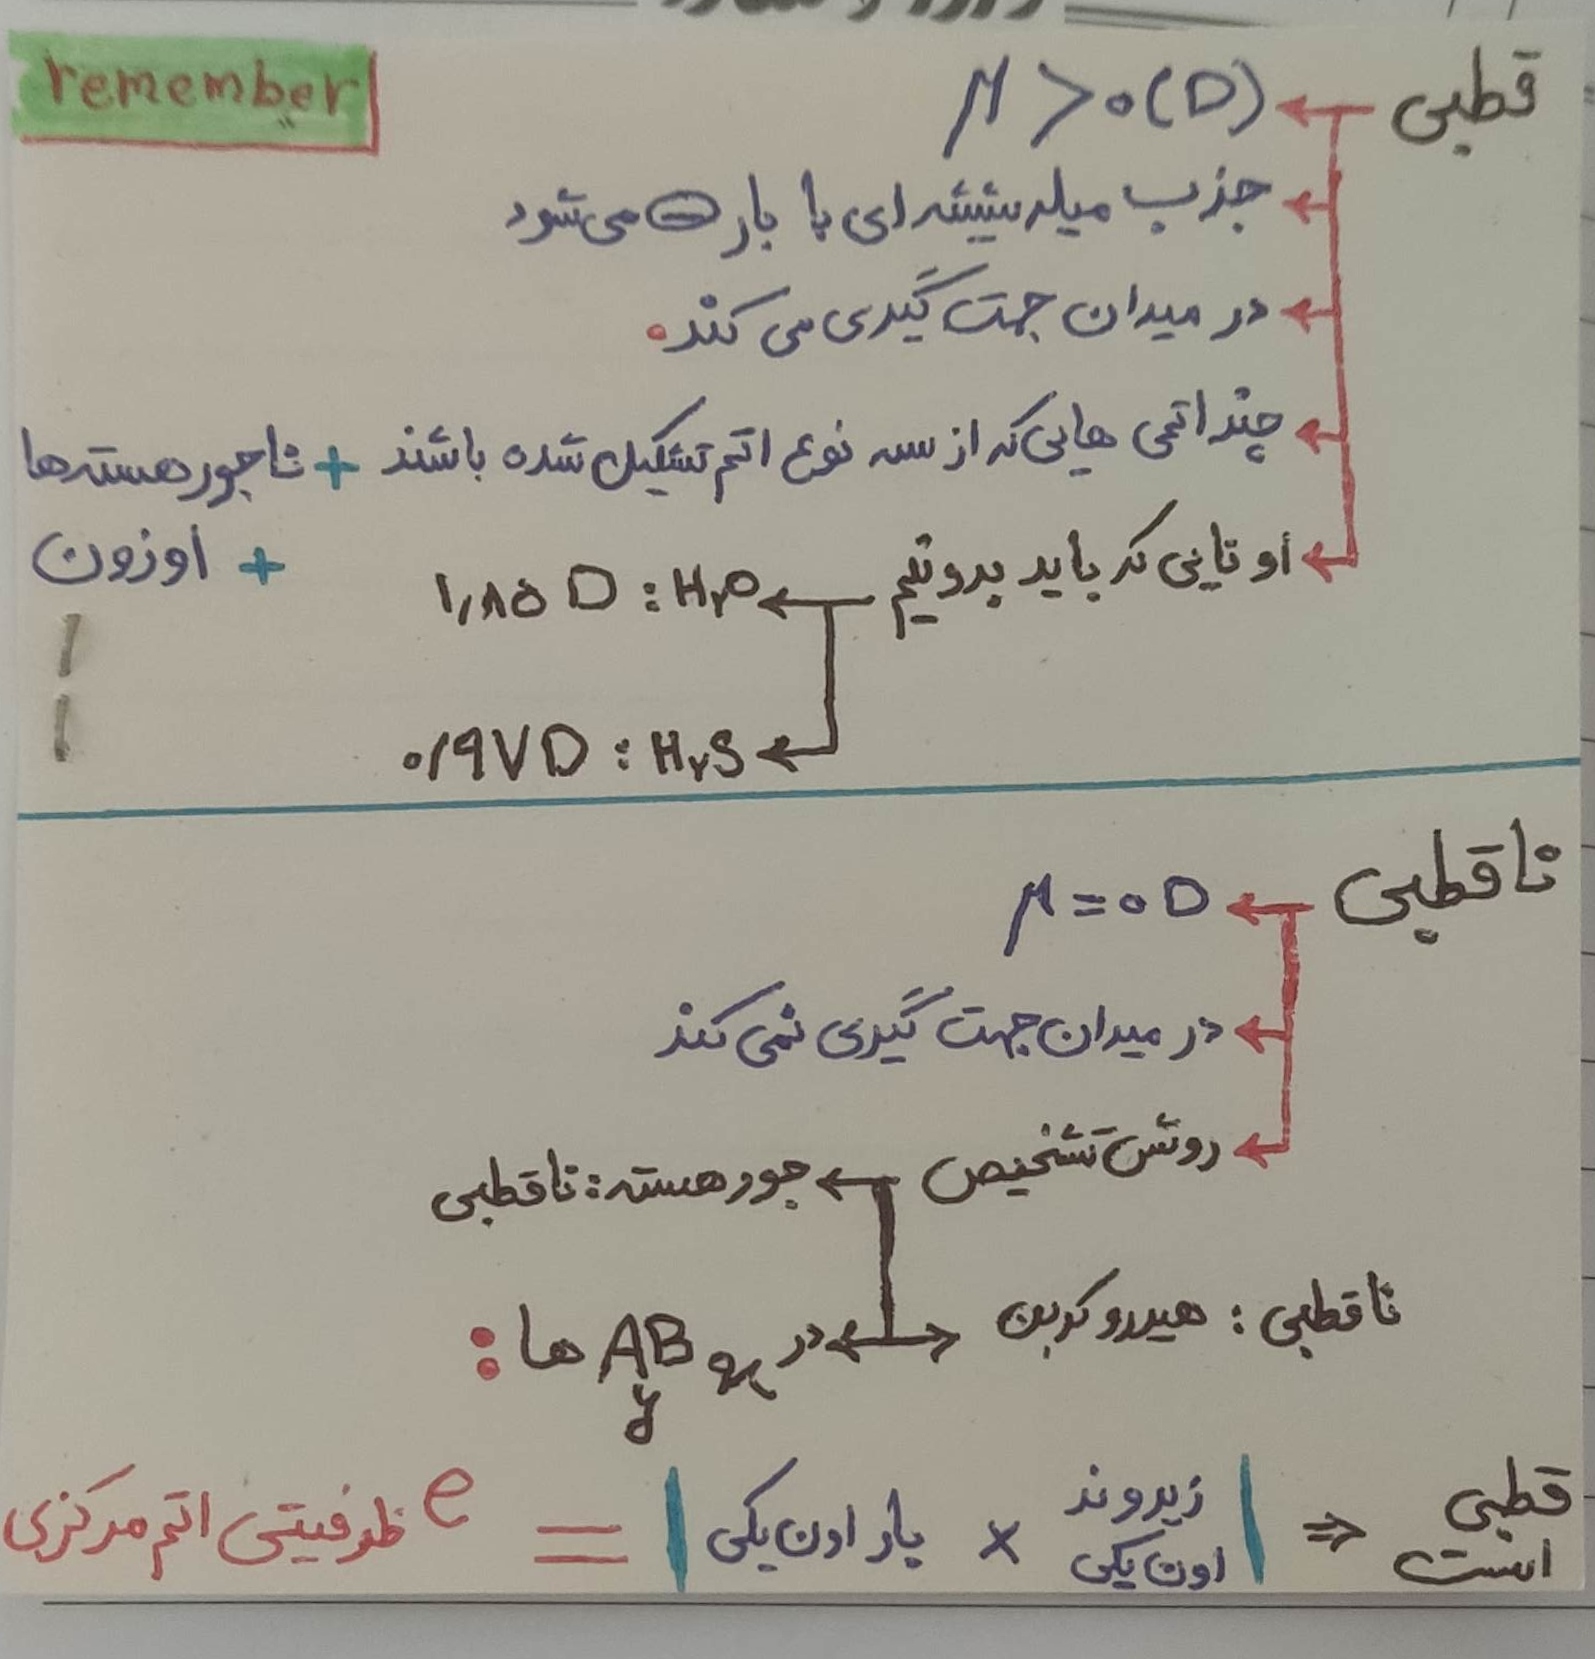 remember
قطبی ← μ > ۰ (D)
← جذب میله شیشه ای با بار ⊖ می شود
← در میدان جهت گیری می کند.
← چند اتمی هایی که از سه نوع اتم تشکیل شده باشند + ناجور هسته ها
+ اوزون
← أو تایی که باید بدونیم ← H₂O : ۱٫۸۵ D
← H₂S : ۰٫۹۷ D
ناقطبی ← μ = ۰ D
← در میدان جهت گیری نمی کند
← روش تشخیص ← جور هسته : ناقطبی
ناقطبی : هیدروکربن ↔ در AB ها :
قطبی است ⇐ | زیروند اون یکی × بار اون یکی | = e ظرفیتی اتم مرکزی